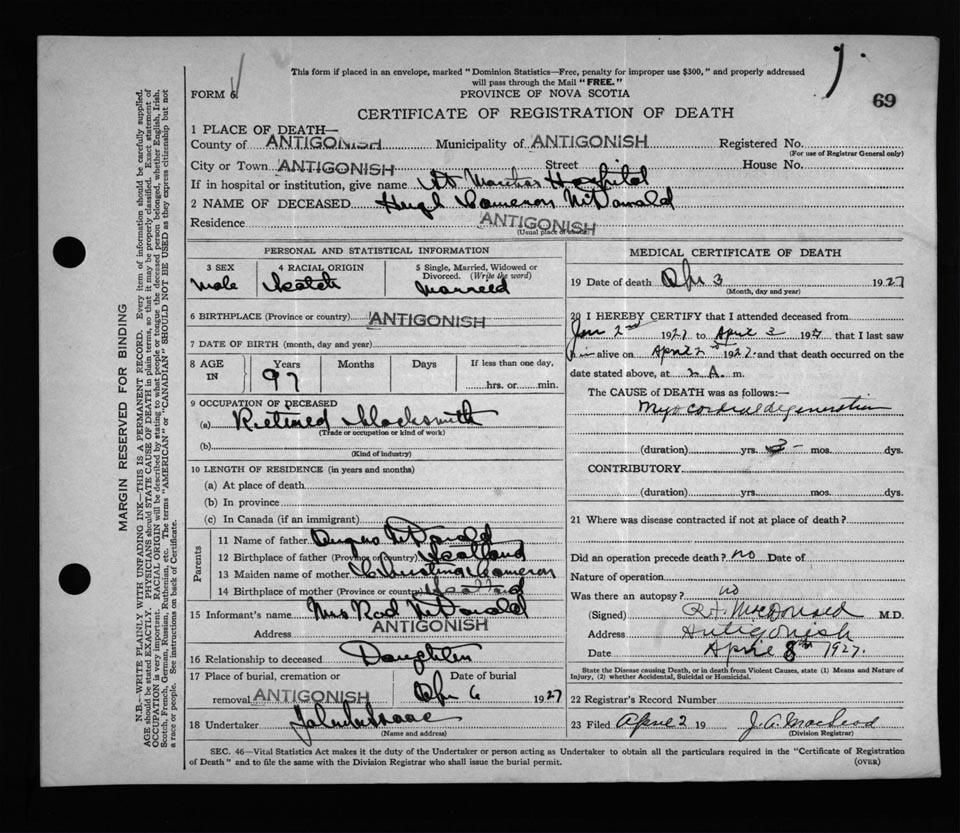 This form if placed in an envelope, marked "Dominion Statistics—Free, penalty for improper use $300," and properly addressed
will pass through the Mail "FREE."
FORM 6
PROVINCE OF NOVA SCOTIA
69
CERTIFICATE OF REGISTRATION OF DEATH
1 PLACE OF DEATH—
County of ANTIGONISH Municipality of ANTIGONISH Registered No.
(For use of Registrar General only)
City or Town ANTIGONISH Street House No.
If in hospital or institution, give name St Marthas Hospital
2 NAME OF DECEASED Hugh Cameron McDonald
Residence ANTIGONISH
(Usual place of abode)
PERSONAL AND STATISTICAL INFORMATION
3 SEX 4 RACIAL ORIGIN 5 Single, Married, Widowed or
Divorced. (Write the word)
Male Scotch Married
6 BIRTHPLACE (Province or country) ANTIGONISH
7 DATE OF BIRTH (month, day and year)
8 AGE IN Years Months Days If less than one day,
97 hrs. or min.
9 OCCUPATION OF DECEASED
(a) Retired blacksmith
(Trade or occupation or kind of work)
(b)
(Kind of industry)
10 LENGTH OF RESIDENCE (in years and months)
(a) At place of death
(b) In province
(c) In Canada (if an immigrant)
Parents
11 Name of father Angus McDonald
12 Birthplace of father (Province or country) Scotland
13 Maiden name of mother Christina Cameron
14 Birthplace of mother (Province or country) Scotland
15 Informant's name Mrs Rod McDonald
Address ANTIGONISH
16 Relationship to deceased Daughter
17 Place of burial, cremation or Date of burial
removal ANTIGONISH Apr 6 1927
18 Undertaker
(Name and address)
MEDICAL CERTIFICATE OF DEATH
19 Date of death Apr 3 1927
(Month, day and year)
20 I HEREBY CERTIFY that I attended deceased from
Jan 2nd 1927 to April 3 1927 that I last saw
him alive on April 2nd 1927 and that death occurred on
date stated above, at 2 A. m.
The CAUSE of DEATH was as follows:—
Myocardial degeneration
(duration) yrs. 3 - mos. dys.
CONTRIBUTORY
(duration) yrs. mos. dys.
21 Where was disease contracted if not at place of death?
Did an operation precede death? no Date of
Nature of operation
Was there an autopsy? no
(Signed) R.F. McDonald M.D.
Address Antigonish
Date April 8th 1927.
State the Disease causing Death, or in death from Violent Causes, state (1) Means and Nature of
Injury, (2) whether Accidental, Suicidal or Homicidal.
22 Registrar's Record Number
23 Filed April 2 19 J. A. MacLeod
(Division Registrar)
SEC. 46—Vital Statistics Act makes it the duty of the Undertaker or person acting as Undertaker to obtain all the particulars required in the "Certificate of Registration
of Death" and to file the same with the Division Registrar who shall issue the burial permit.
(OVER)
MARGIN RESERVED FOR BINDING
N.B.—WRITE PLAINLY WITH UNFADING INK—THIS IS A PERMANENT RECORD. Every item of information should be carefully supplied.
AGE should be stated EXACTLY. PHYSICIANS should STATE CAUSE OF DEATH in plain terms, so that it may be properly classified. Exact statement of
OCCUPATION is very important. RACIAL ORIGIN will be described by stating to what people or tongue the deceased person belonged, whether English, Irish,
Scotch, French, German, Russian, Ruthenian, etc. The terms "AMERICAN" or "CANADIAN" SHOULD NOT BE USED as they express citizenship but not
a race or people. See instructions on back of Certificate.